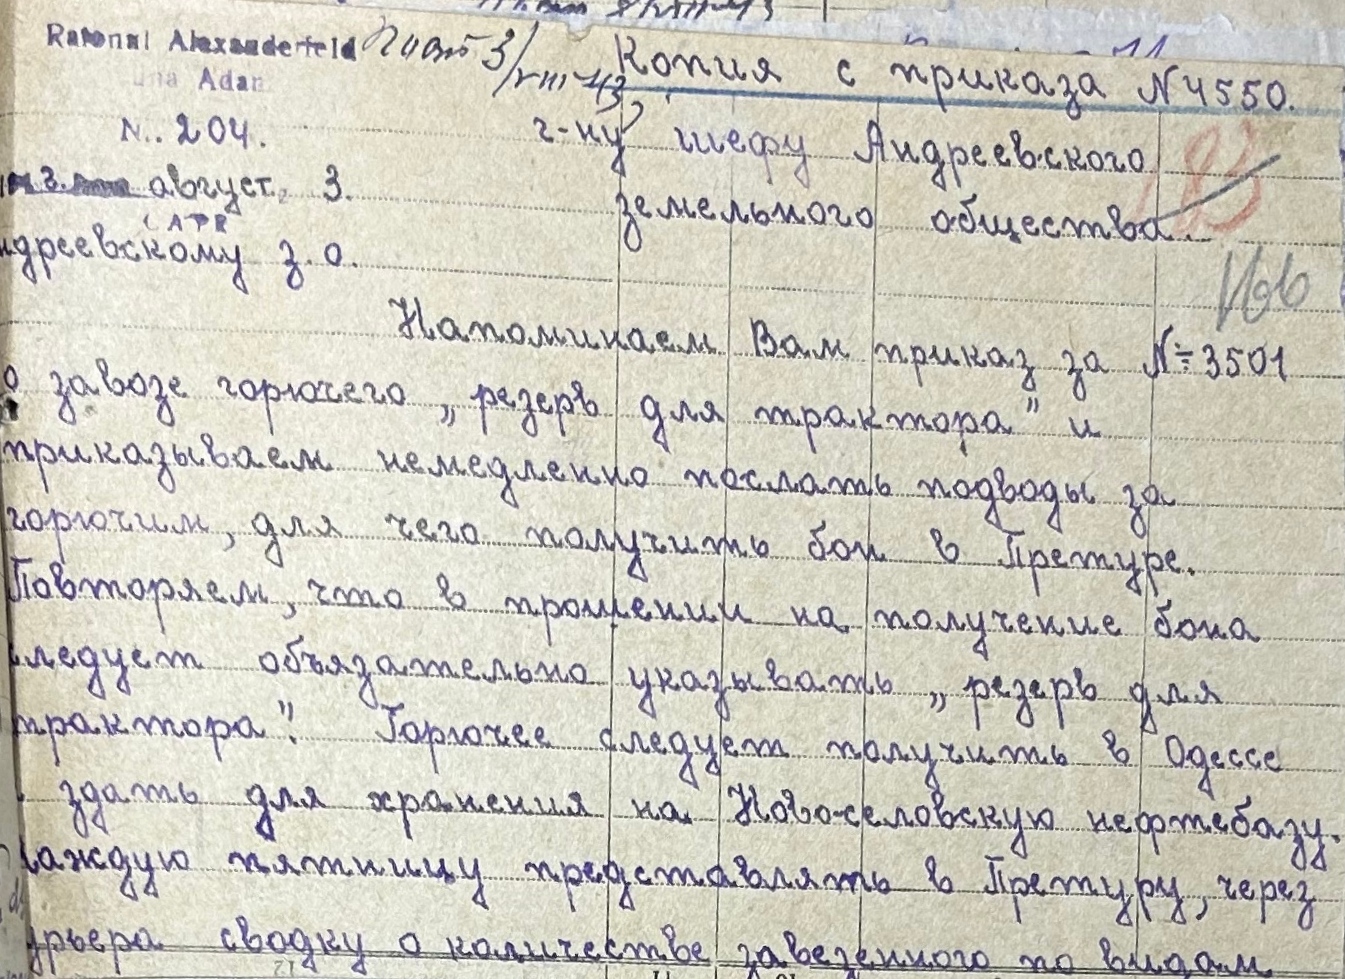 Raionul Alexanderfeld
Adan
3/VIII-43
Копия с приказа N 4550.
N.. 204.
г-ну шефу Андреевского
август. 3.
земельного общества
ндреевскому з.о.
Напоминаем Вам приказ за N÷3501
о завозе горючего „резерв для трактора" и
приказываем немедленно послать подводы за
горючим, для чего получить бон в Претуре.
Повторяем, что в прошении на получение бона
следует обьязательно указывать „резерв для
трактора". Горючее следует получить в Одессе
здать для хранения на Ново-селовскую нефтебазу.
каждую пятницу представлять в Претуру, через
урьера сводку о количестве завезенного по видам